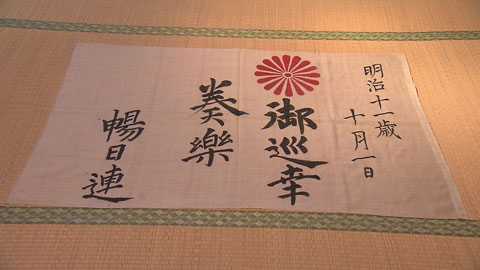 明治十一歳
十月一日
御巡幸
奏樂
暢日連